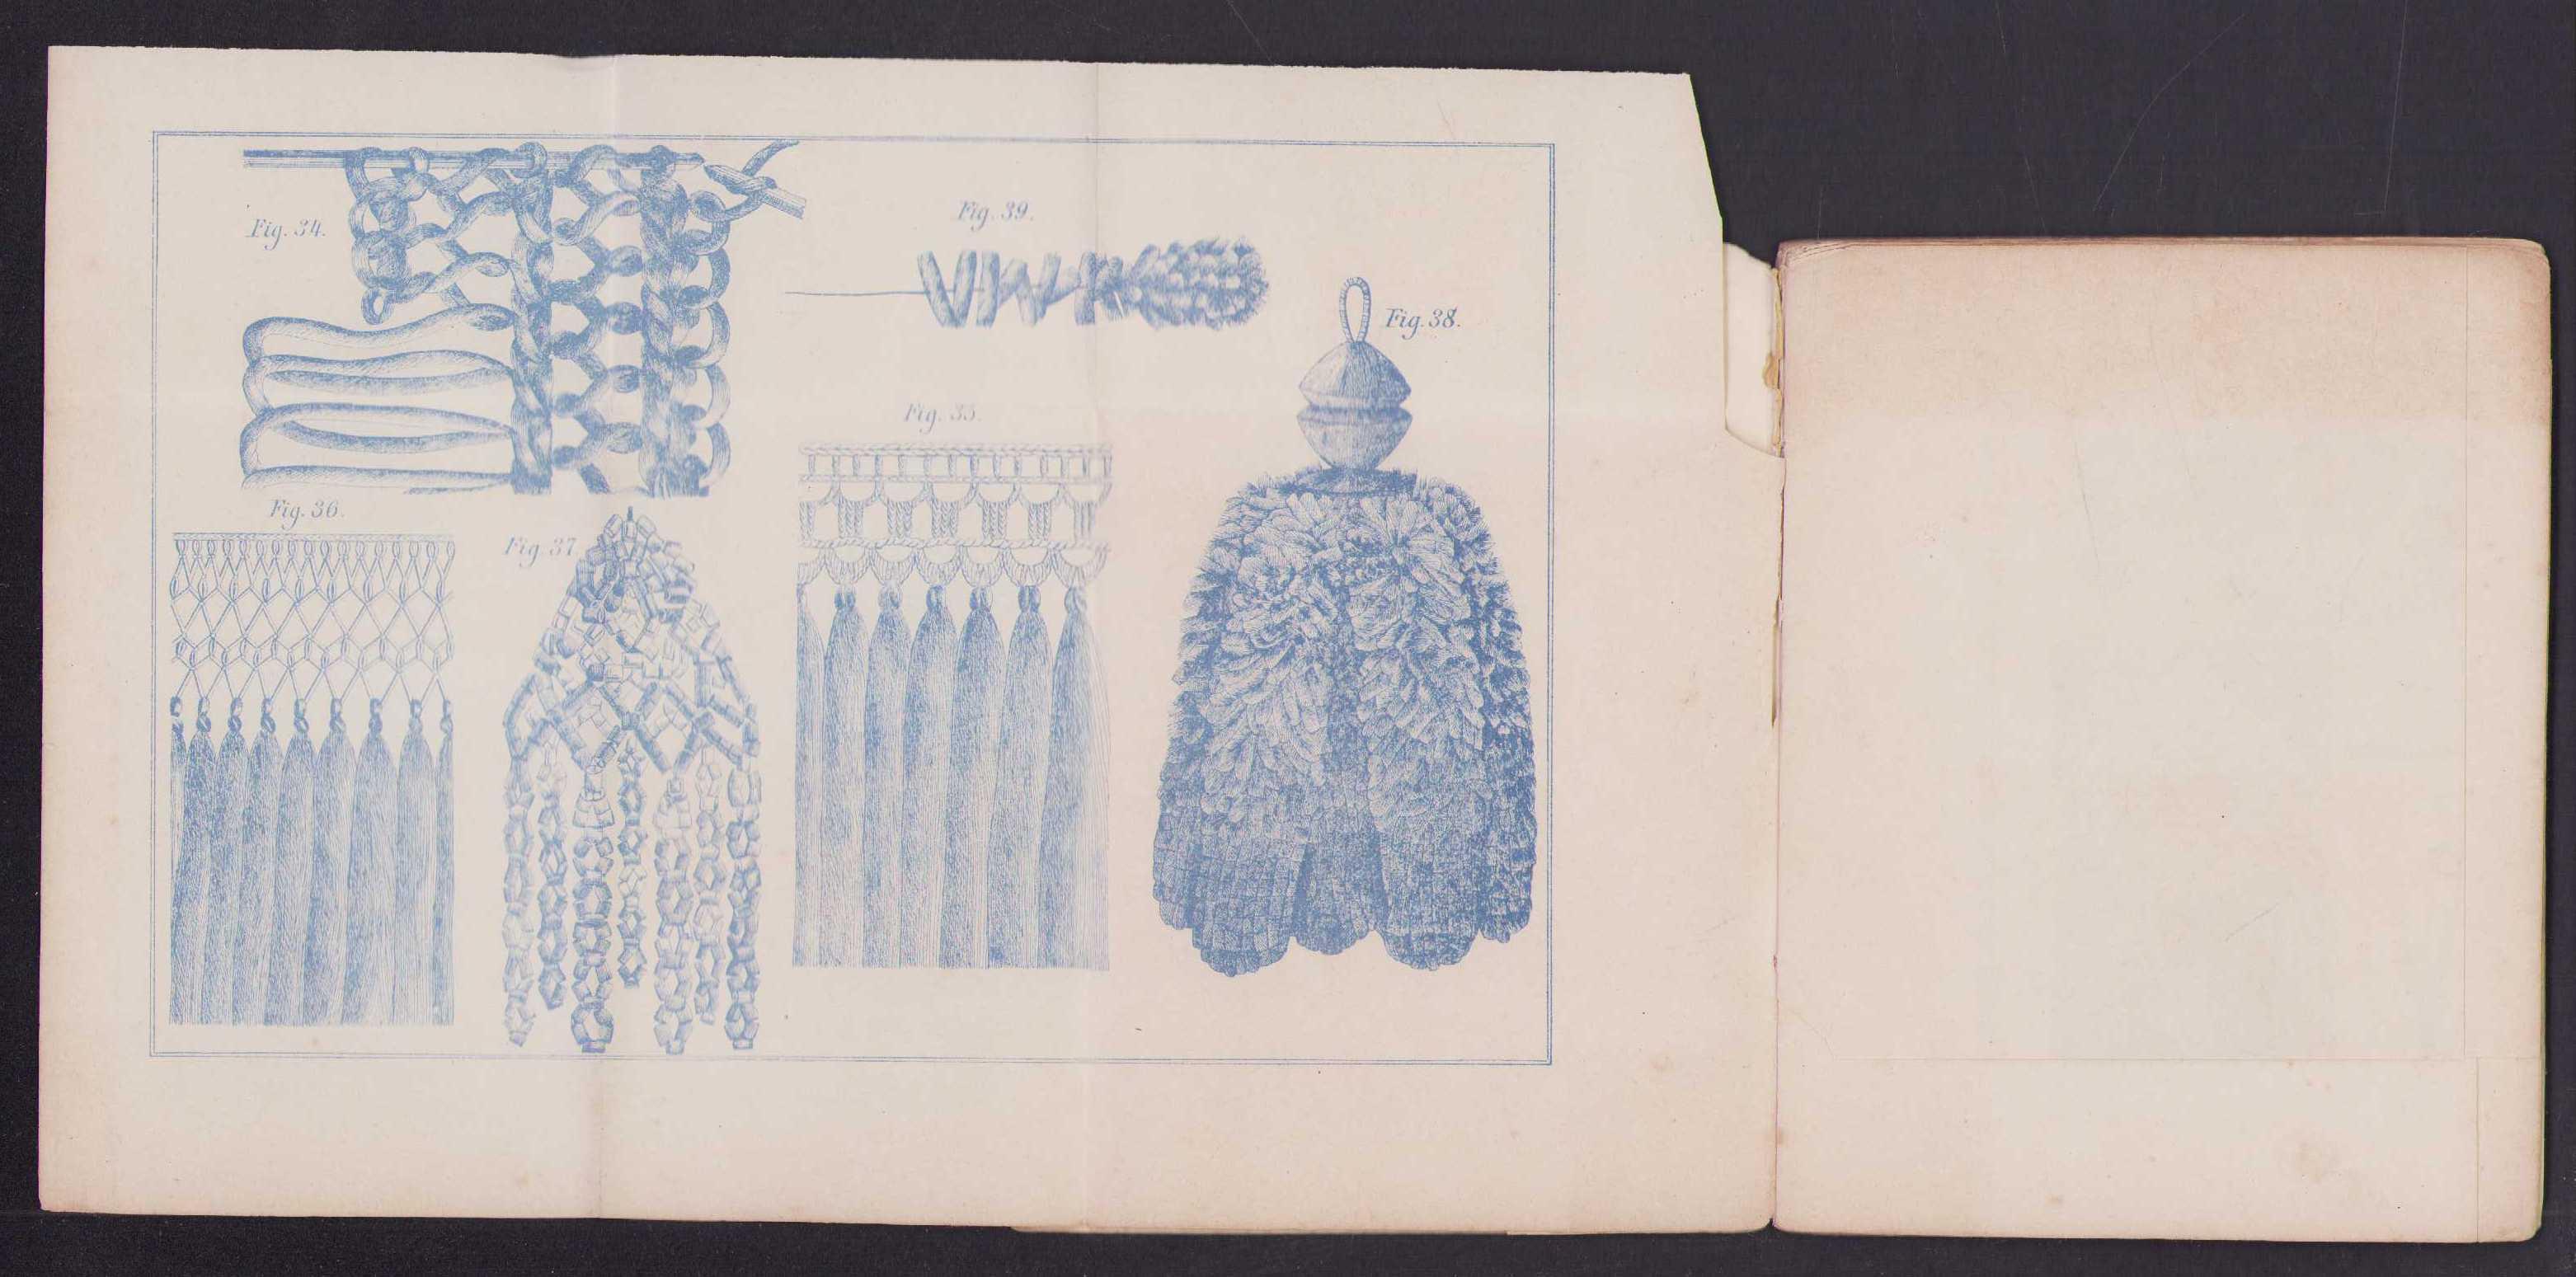 Fig. 34.
Fig. 39.
Fig. 38.
Fig. 35.
Fig. 36.
Fig. 37.